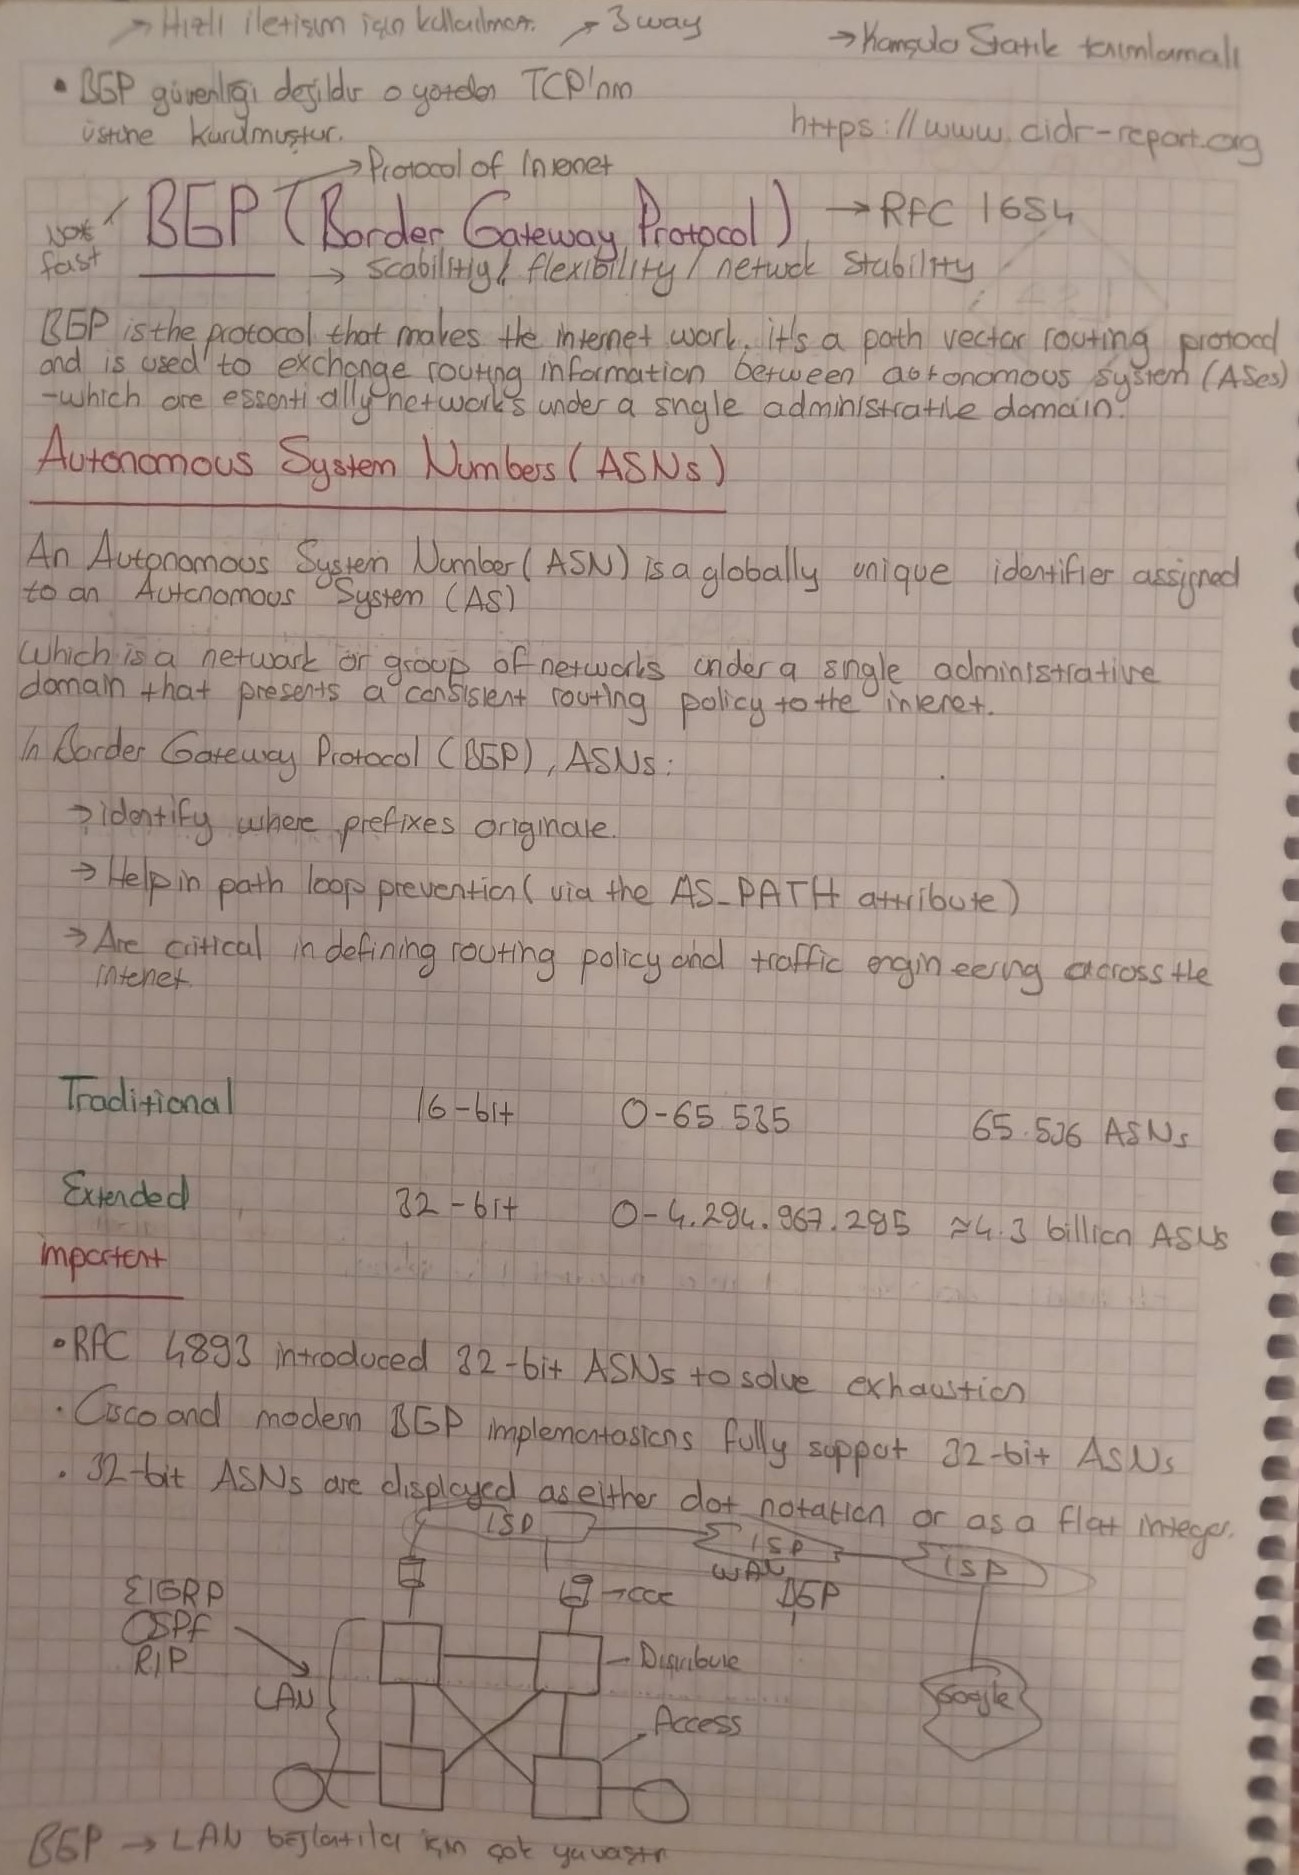 → Hızlı iletişim için kullanılmaz. → 3 way
→ Komşulo Statik tanımlamalı
• BGP güvenliği değildir o yüzden TCP'nin
üstüne kurulmuştur.
https://www.cidr-report.org
→ Protocol of Internet
not fast
BGP (Border Gateway Protocol) → RFC 1654
→ scability / flexibility / network stability
BGP is the protocol that makes the internet work. it's a path vector routing protocol
and is used to exchange routing information between autonomous system (ASes)
-which are essentially networks under a single administrative domain.
Autonomous System Numbers (ASNs)
An Autonomous System Number (ASN) is a globally unique identifier assigned
to an Autonomous System (AS)
Which is a network or group of networks under a single administrative
domain that presents a consistent routing policy to the internet.
In Border Gateway Protocol (BGP), ASNs:
→ identify where prefixes originate.
→ Help in path loop prevention (via the AS_PATH attribute)
→ Are critical in defining routing policy and traffic engineering across the
internet
Traditional 16-bit 0-65 535 65.536 ASNs
Extended 32-bit 0-4.294.967.295 ≈4.3 billion ASNs
important
• RFC 4893 introduced 32-bit ASNs to solve exhaustion
• Cisco and modern BGP implementasions fully support 32-bit ASNs
• 32-bit ASNs are displayed as either dot notation or as a flat integer.
ISP
ISP
ISP
WAN
BGP
EIGRP
OSPF
RIP
LAN
Distribute
Access
Google
BGP → LAN bağlantıları için çok yavaştır